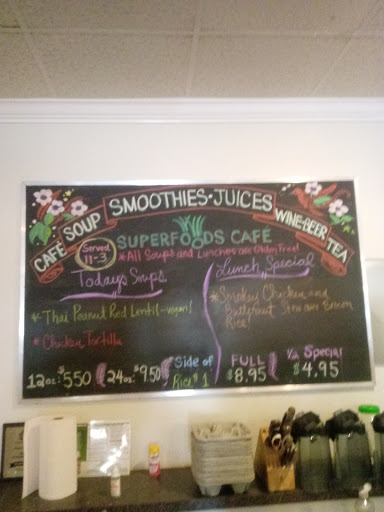 CAFÉ SOUP SMOOTHIES-JUICES WINE-BEER TEA
Served
11-3
SUPERFOODS CAFÉ
*All Soups and Lunches are Gluten Free!
Today's Soups
Lunch Special
*Thai Peanut Red Lentil-vegan!
*Chicken Tortilla
*Smokey Chicken and
Butternut Stew over Brown
Rice!
12oz: $550
24oz: $9.50
Side of
Rice $1
FULL
$8.95
1/2 Special
$4.95